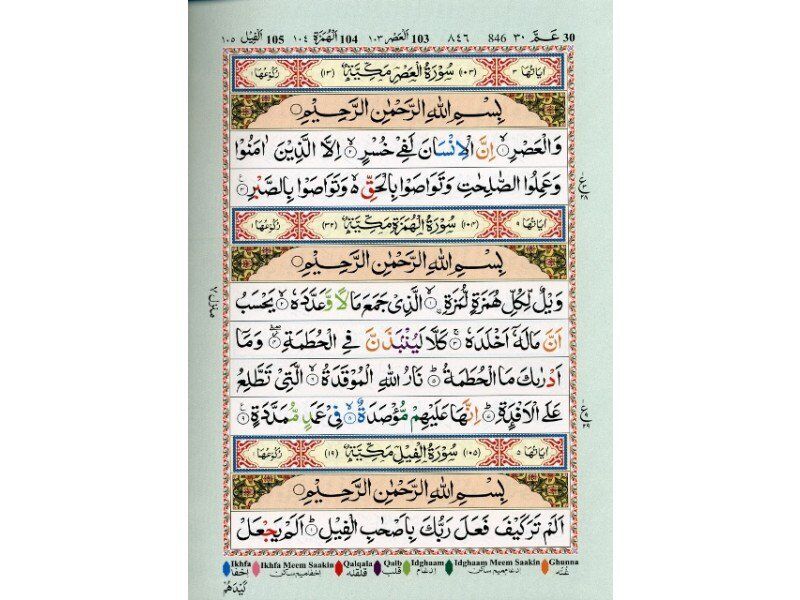 30 عَمَّ ٣٠ 846 ٨٤٦ 103 اَلْعَصْر ١٠٣ 104 اَلْهُمَزَة ١٠٤ 105 اَلْفِيل ١٠٥
اٰيَاتُهَا ٣ (١٠٣) سُوْرَةُ الْعَصْرِ مَكِّيَّةٌ (١٣) رُكُوْعُهَا ١
بِسْمِ اللّٰهِ الرَّحْمٰنِ الرَّحِيْمِ
وَالْعَصْرِ ۙ‏ ١ اِنَّ الْاِنْسَانَ لَفِىْ خُسْرٍ ۙ‏ ٢ اِلَّا الَّذِيْنَ اٰمَنُوْا
وَعَمِلُوا الصّٰلِحٰتِ وَتَوَاصَوْا بِالْحَقِّ ۙ وَتَوَاصَوْا بِالصَّبْرِ ٣
اٰيَاتُهَا ٩ (١٠٤) سُوْرَةُ الْهُمَزَةِ مَكِّيَّةٌ (٣٢) رُكُوْعُهَا ١
بِسْمِ اللّٰهِ الرَّحْمٰنِ الرَّحِيْمِ
وَيْلٌ لِّكُلِّ هُمَزَةٍ لُّمَزَةٍ ۙ ١ الَّذِىْ جَمَعَ مَالًا وَّعَدَّدَهٗ ۙ ٢ يَحْسَبُ
اَنَّ مَالَهٗۤ اَخْلَدَهٗ ۚ ٣ كَلَّا لَيُنْۢبَذَنَّ فِى الْحُطَمَةِ ۖ ٤ وَمَاۤ
اَدْرٰىكَ مَا الْحُطَمَةُ ؕ ٥ نَارُ اللّٰهِ الْمُوْقَدَةُ ۙ ٦ الَّتِىْ تَطَّلِعُ
عَلَى الْاَفْـِٕدَةِ ؕ ٧ اِنَّهَا عَلَيْهِمْ مُّؤْصَدَةٌ ۙ ٨ فِىْ عَمَدٍ مُّمَدَّدَةٍ ٩
اٰيَاتُهَا ٥ (١٠٥) سُوْرَةُ الْفِيْلِ مَكِّيَّةٌ (١٩) رُكُوْعُهَا ١
بِسْمِ اللّٰهِ الرَّحْمٰنِ الرَّحِيْمِ
اَلَمْ تَرَ كَيْفَ فَعَلَ رَبُّكَ بِاَصْحٰبِ الْفِيْلِ ؕ ١ اَلَمْ يَجْعَلْ
Ikhfa Ikhfa Meem Saakin Qalqala Qalb Idghaam Idghaam Meem Saakin Ghunna
اخفا اخفا میم ساکن قلقلہ قلب ادغام ادغام میم ساکن غنہ
كَيْدَهُمْ
منزل ٧